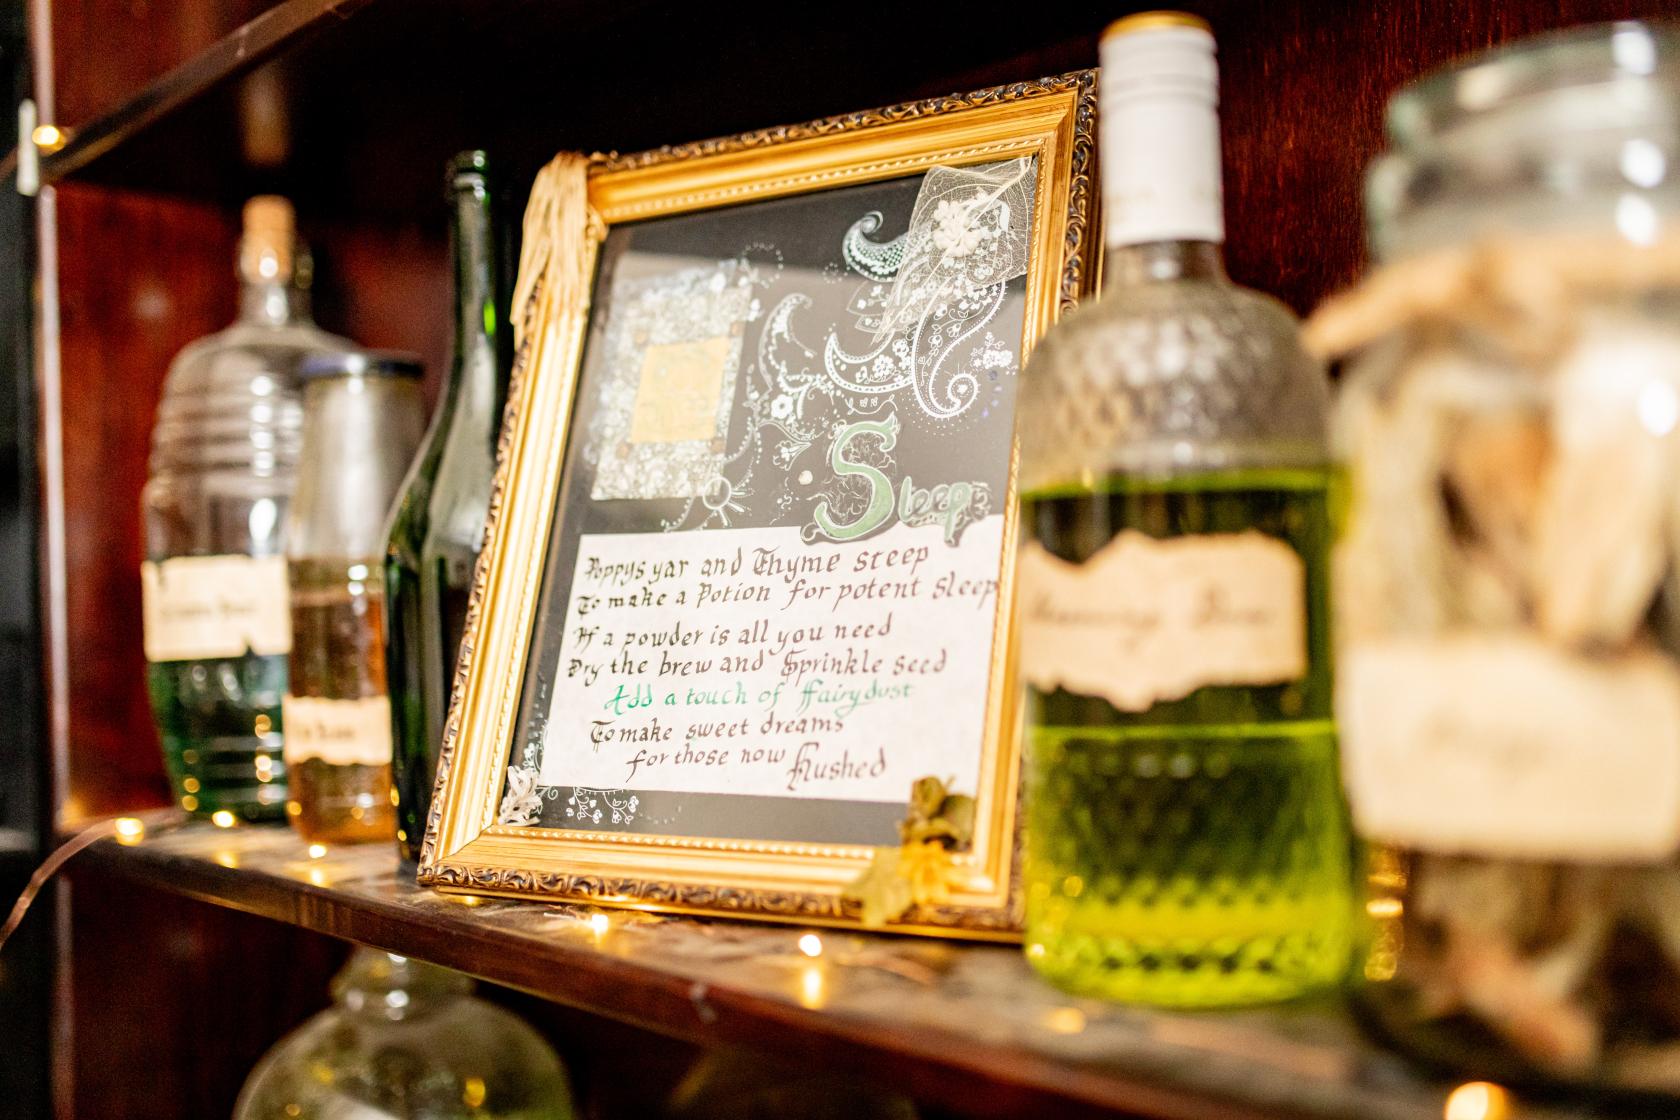 Sleep
Poppys yar and Thyme steep
To make a Potion for potent Sleep
If a powder is all you need
Dry the brew and Sprinkle seed
Add a touch of ffairydust
To make sweet dreams
for those now Hushed